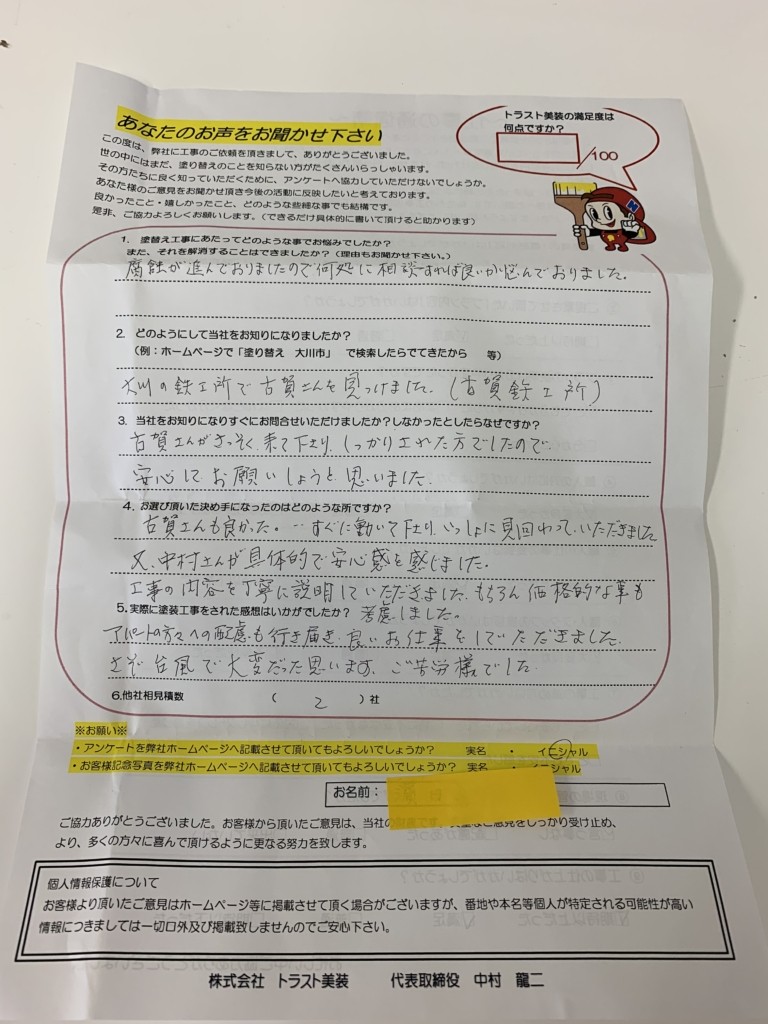 あなたのお声をお聞かせ下さい
トラスト美装の満足度は
何点ですか？
/100
この度は、弊社に工事のご依頼を頂きまして、ありがとうございました。
世の中にはまだ、塗り替えのことを知らない方がたくさんいらっしゃいます。
その方たちに良く知っていただくために、アンケートへ協力していただけないでしょうか。
あなた様のご意見をお聞かせ頂き今後の活動に反映したいと考えております。
良かったこと・嬉しかったこと、どのような些細な事でも結構です。
是非、ご協力よろしくお願いします。（できるだけ具体的に書いて頂けると助かります）
1. 塗替え工事にあたってどのような事でお悩みでしたか？
また、それを解消することはできましたか？（理由もお聞かせ下さい。）
腐蝕が進んでおりましたので何処に相談すれば良いか悩んでおりました。
2. どのようにして当社をお知りになりましたか？
（例：ホームページで「塗り替え 大川市」 で検索したらでてきたから 等）
大川の鉄工所で古賀さんを見つけました。（古賀鉄工所）
3. 当社をお知りになりすぐにお問合せいただけましたか？しなかったとしたらなぜですか？
古賀さんがさっそく来て下さり、しっかりされた方でしたので
安心してお願いしようと思いました。
4. お選び頂いた決め手になったのはどのような所ですか？
古賀さんも良かった。…すぐに動いて下さり、いっしょに見回わっていただきました
又、中村さんが具体的で安心感を感じました。
工事の内容を丁寧に説明していただきました。もちろん価格的な事も
考慮しました。
5. 実際に塗装工事をされた感想はいかがでしたか？
アパートの方々への配慮も行き届き、良いお仕事をしていただきました。
さぞ台風で大変だった思います。ご苦労様でした。
6.他社相見積数 （ 2 ）社
※お願い※
・アンケートを弊社ホームページへ記載させて頂いてもよろしいでしょうか？ 実名 ・ イニシャル
・お客様記念写真を弊社ホームページへ記載させて頂いてもよろしいでしょうか？ 実名 ・ イニシャル
お名前：
ご協力ありがとうございました。お客様から頂いたご意見は、当社の なご意見をしっかり受け止め、
より、多くの方々に喜んで頂けるように更なる努力を致します。
個人情報保護について
お客様より頂いたご意見はホームページ等に掲載させて頂く場合がございますが、番地や本名等個人が特定される可能性が高い
情報につきましては一切口外及び掲載致しませんのでご安心下さい。
株式会社 トラスト美装 代表取締役 中村 龍二